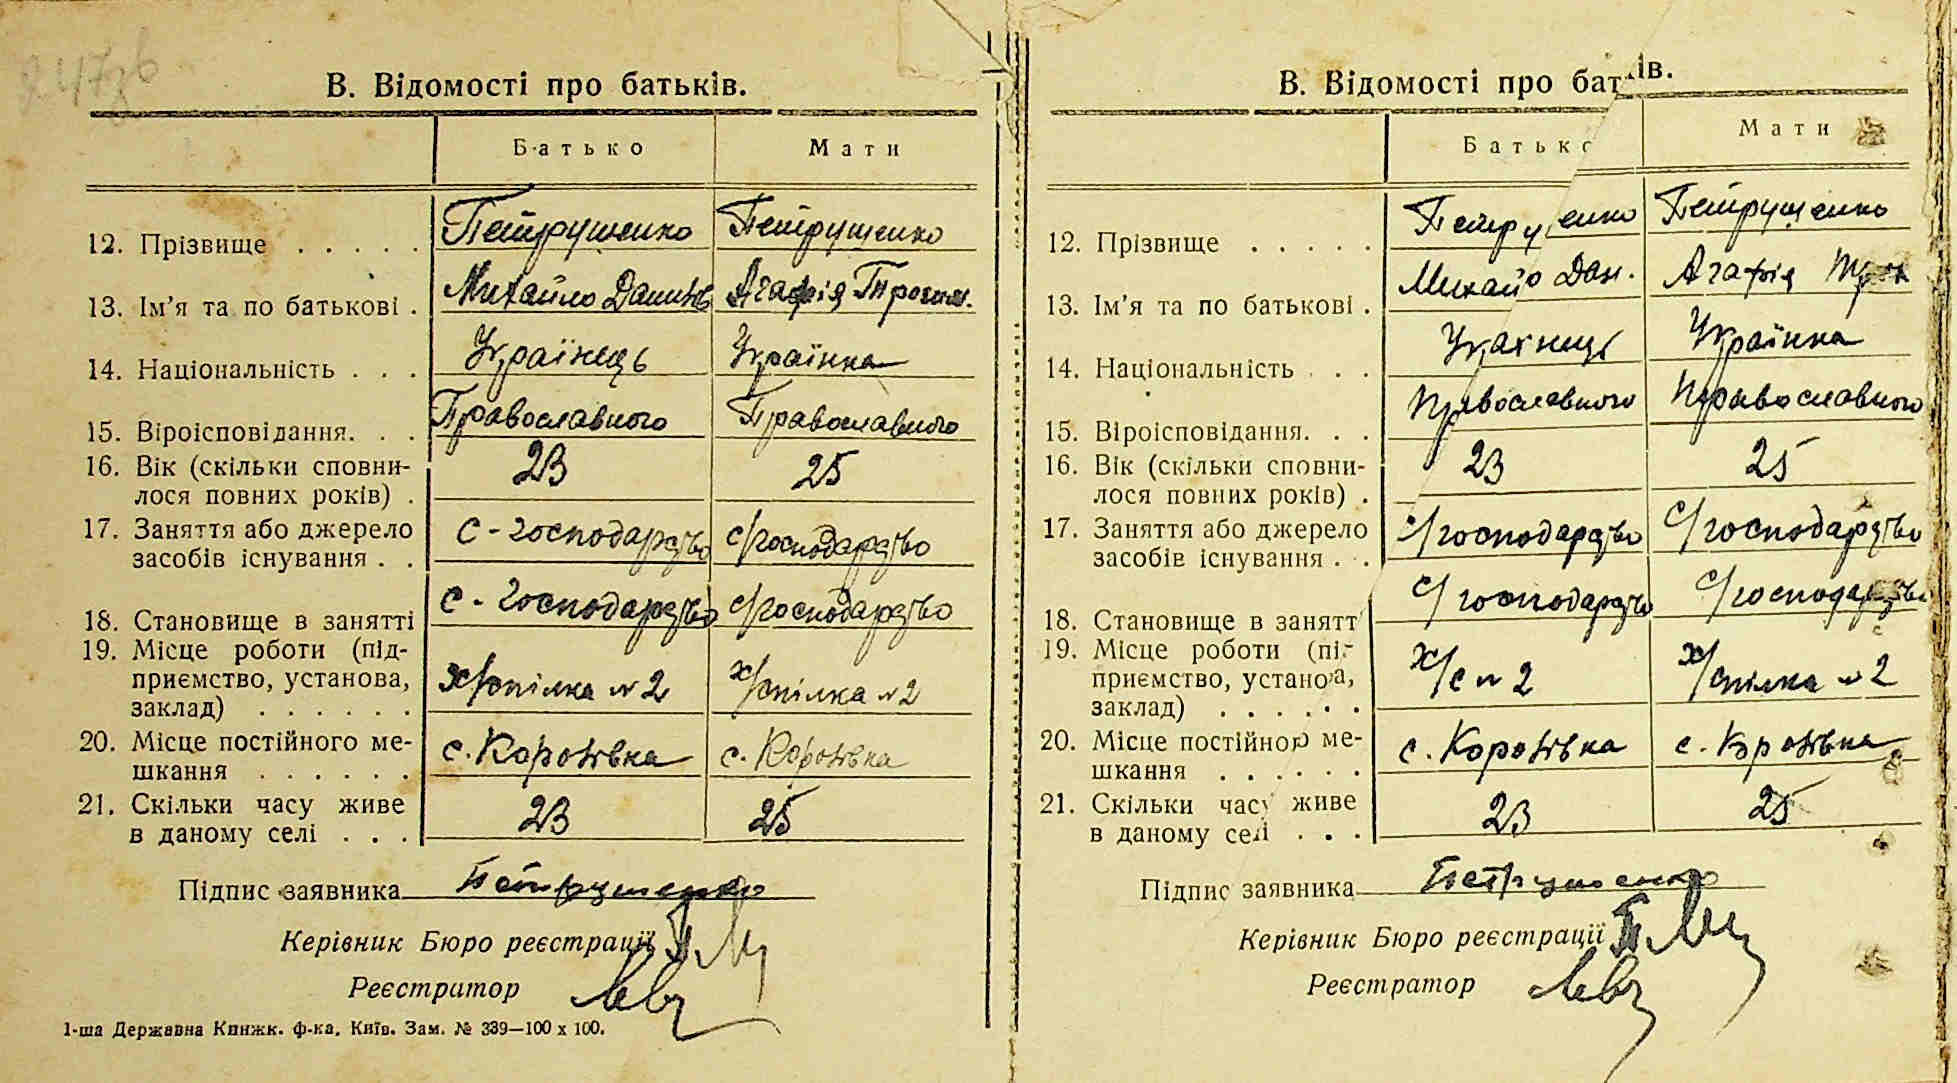 В. Відомості про батьків.
Батько Мати
12. Прізвище . . . . . Петрушенко Петрущенко
13. Ім'я та по батькові . Михайло Данилів Агафія Трохим.
14. Національність . . . Українець Українка
15. Віроісповідання. . . Православного Православного
16. Вік (скільки сповни- 23 25
лося повних років) .
17. Заняття або джерело с-господарство с/господарство
засобів існування . .
18. Становище в занятті с-господарство с/господарство
19. Місце роботи (під-
приємство, установа, х/спілка №2 х/спілка №2
заклад) . . . . . .
20. Місце постійного ме- с. Коронівка с. Коронівка
шкання . . . . . .
21. Скільки часу живе 23 25
в даному селі . . .
Підпис заявника Петрушенко
Керівник Бюро реєстрації
Реєстратор
1-ша Державна Книжк. ф-ка, Київ. Зам. № 339—100 x 100.
В. Відомості про бат ів.
Батько Мати
12. Прізвище . . . . . Петру енко Петрущенко
13. Ім'я та по батькові . Михайо Дан. Агафія
14. Національність . . . Українка
15. Віроісповідання. . . Православного Православного
16. Вік (скільки сповни- 23 25
лося повних років) .
17. Заняття або джерело с/господарство с/господарство
засобів існування . .
18. Становище в занятт с/господарство с/господарство
19. Місце роботи (пі -
приємство, установа, х/с №2 х/спілка №2
заклад) . . . . . .
20. Місце постійного ме- с. Коронівка с. Коронівка
шкання . . . . . .
21. Скільки часу живе 23 25
в даному селі . . .
Підпис заявника Петрушенко
Керівник Бюро реєстрації
Реєстратор